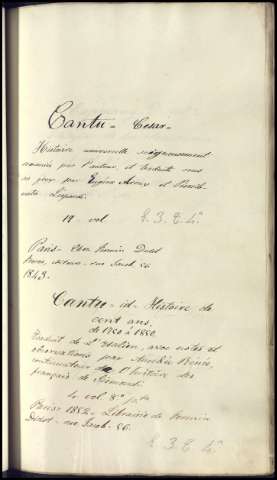 Cantu - Cesar -
Histoire universelle soigneusement
remaniée par l'auteur, et traduite sous
ses yeux par Eugène Aroux et Piersil-
vestro Léopardi.
19 vol E. 3. E. 4.
Paris - Chez Firmin Didot
frères, éditeurs - rue Jacob. 56
1843.
Cantu - id - Histoire de
cent ans,
de 1750 à 1850.
Traduit de l'italien, avec notes et
observations par Amédée Renée,
continuateur de l'histoire des
français de Sismondi.
4 vol 8°
Paris 1852 - Librairie de Firmin
Didot - rue Jacob. 56.
E. 3. E. 4.